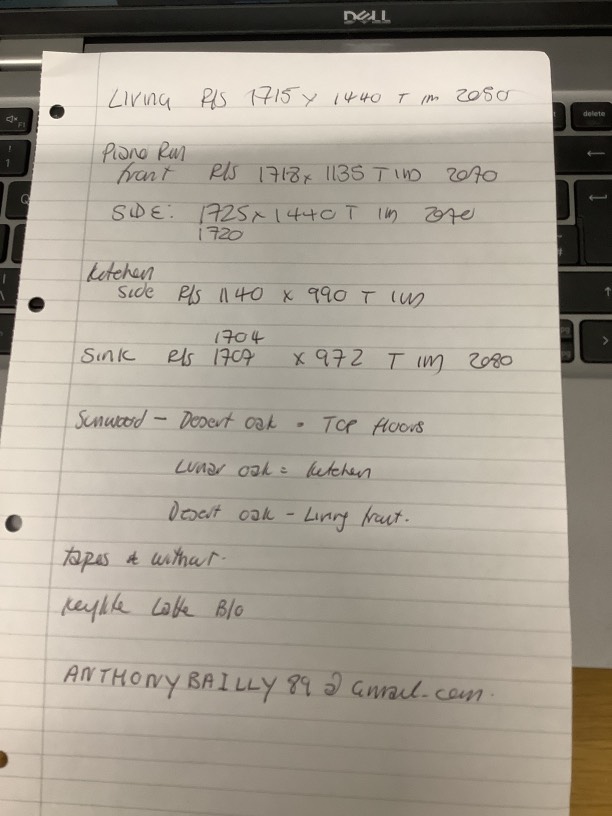 DELL
delete
Living R/S 1715 x 1440 T IM 2080
Piano Rm
front R/S 1718 x 1135 T IM 2070
SIDE: 1725 x 1440 T IM 2070
1720
Kitchen
side R/S 1140 x 990 T IM
1704
Sink R/S 1707 x 972 T IM 2080
Sunwood - Desert oak = TOP floors
Lunar oak = kitchen
Desert oak - Living front.
tapes & without.
Keylite B/O
ANTHONYBAILLY89@gmail.com.